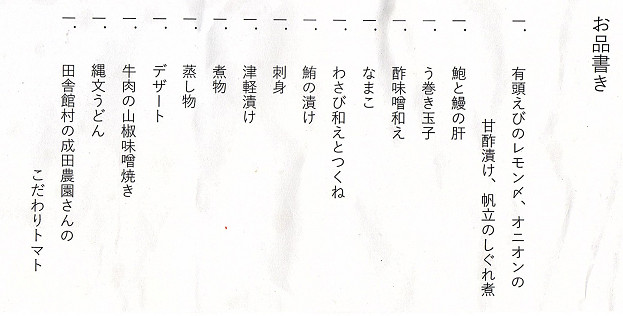 お品書き
一．有頭えびのレモン〆、オニオンの
甘酢漬け、帆立のしぐれ煮
一．鮑と鰻の肝
一．う巻き玉子
一．酢味噌和え
一．なまこ
一．わさび和えとつくね
一．鮪の漬け
一．刺身
一．津軽漬け
一．煮物
一．蒸し物
一．デザート
一．牛肉の山椒味噌焼き
一．縄文うどん
一．田舎館村の成田農園さんの
こだわりトマト